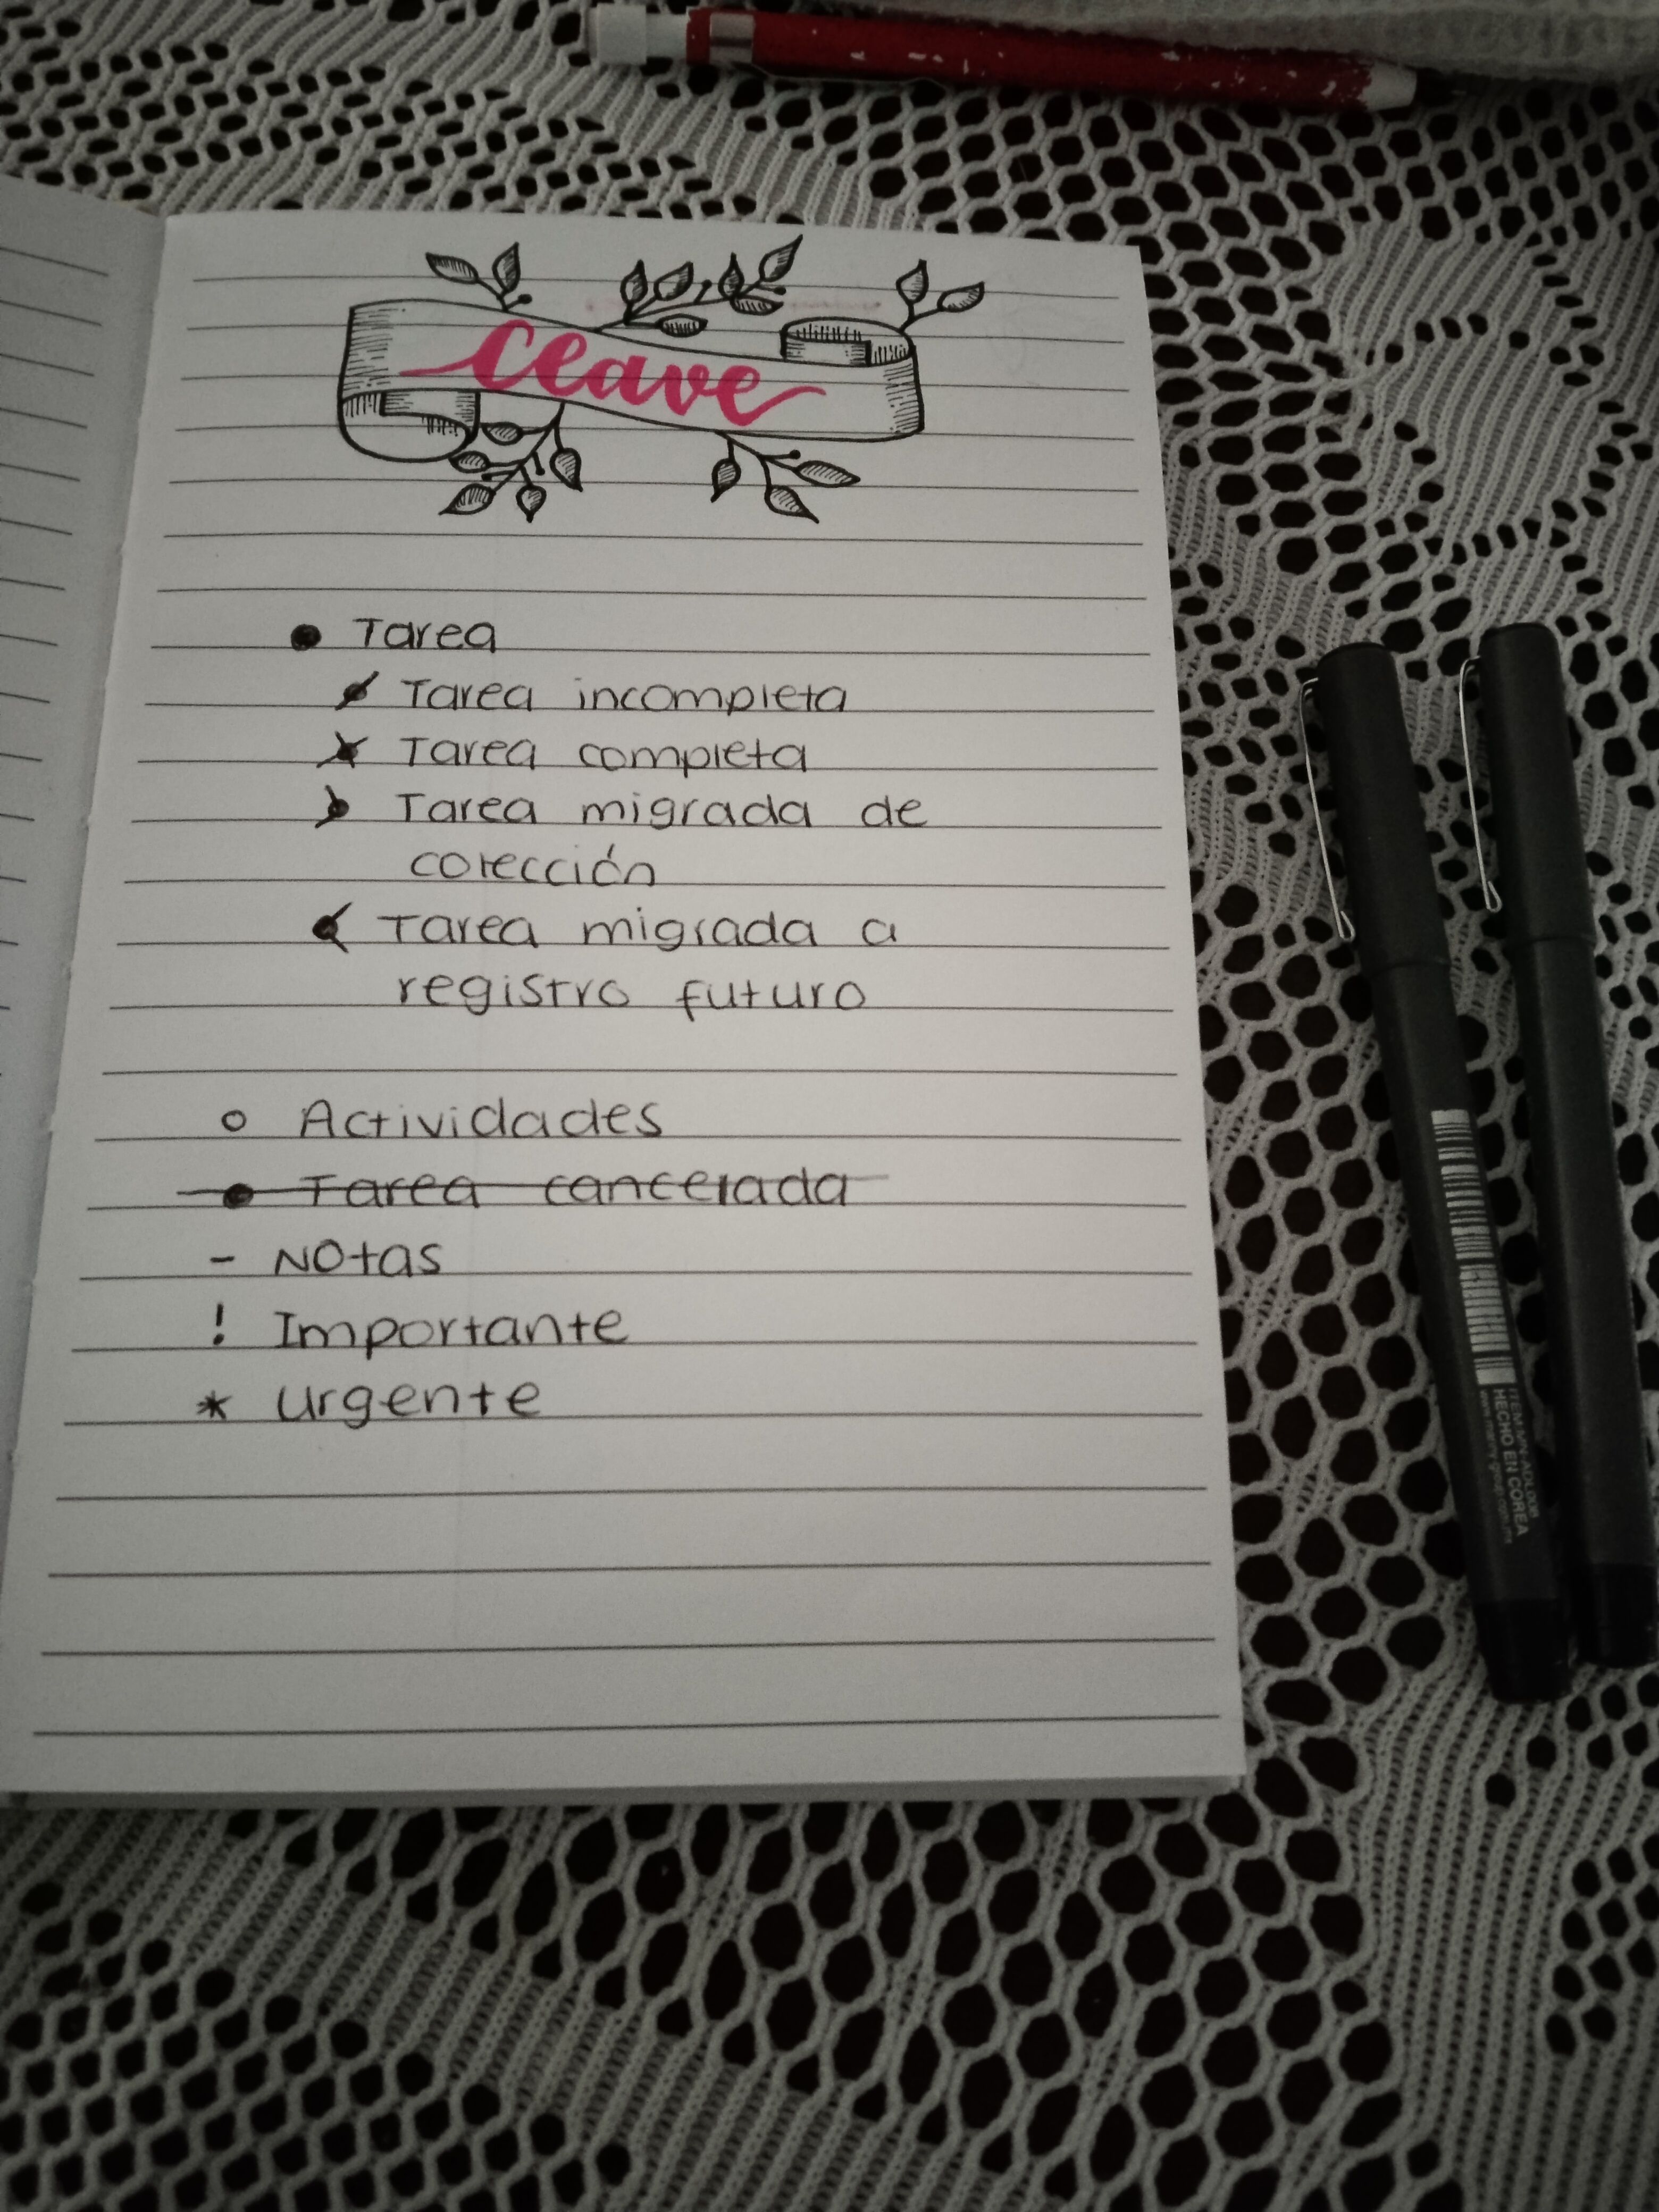 Clave
• Tarea
Tarea incompleta
Tarea completa
Tarea migrada de
colección
Tarea migrada a
registro futuro
○ Actividades
• Tarea cancelada
- Notas
! Importante
* Urgente
HECHO EN COREA